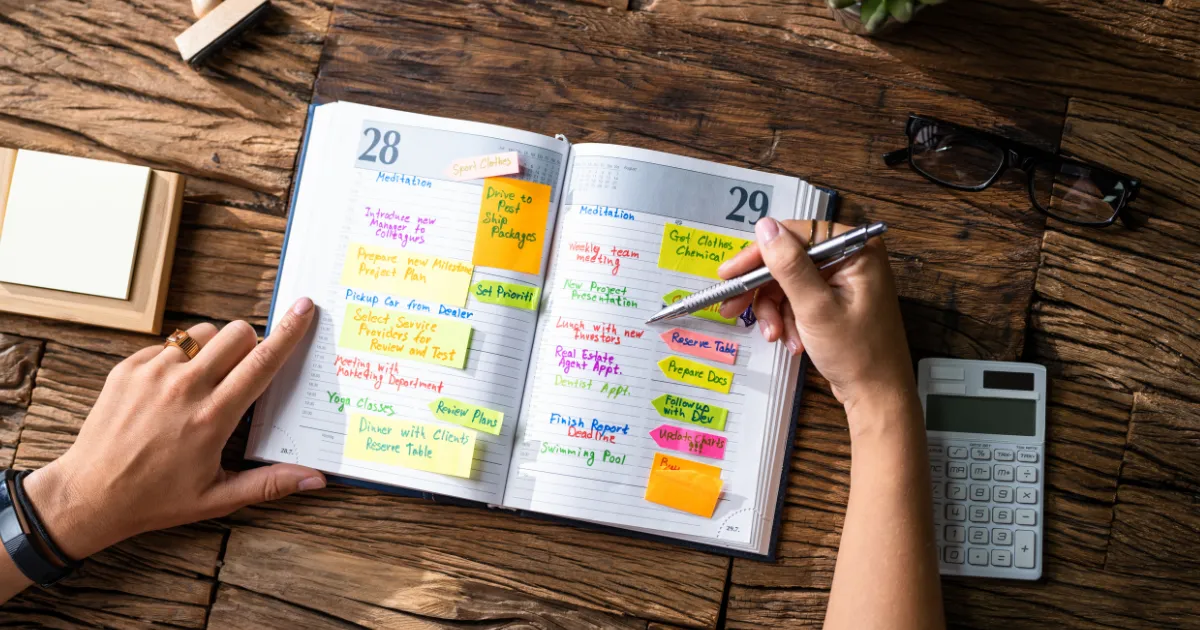 28
Sport Clothes
Meditation
Drive to
Post
Ship
Packages
Introduce new
Manager to
Colleagues
Prepare new Milestone
Project Plan
Set Prioriti
Pickup Car from Dealer
Select Service
Providers for
Review and Test
Meeting with
Marketing Department
Yoga Classes
Review Plans
Dinner with Clients
Reserve Table
29
Meditation
Get Clothes
Chemical
Weekly team
meeting
New Project
Presentation
Lunch with new
Investors
Reserve Table
Real Estate
Agent Appt.
Prepare Docs
Dentist Appt.
Follow up
with Dev
Finish Report
Deadline
Update Charts
!!!
Swimming Pool
29.7.
MR
M-
M+
÷
7
8
9
×
4
5
6
-
1
2
3
+
0
.
=